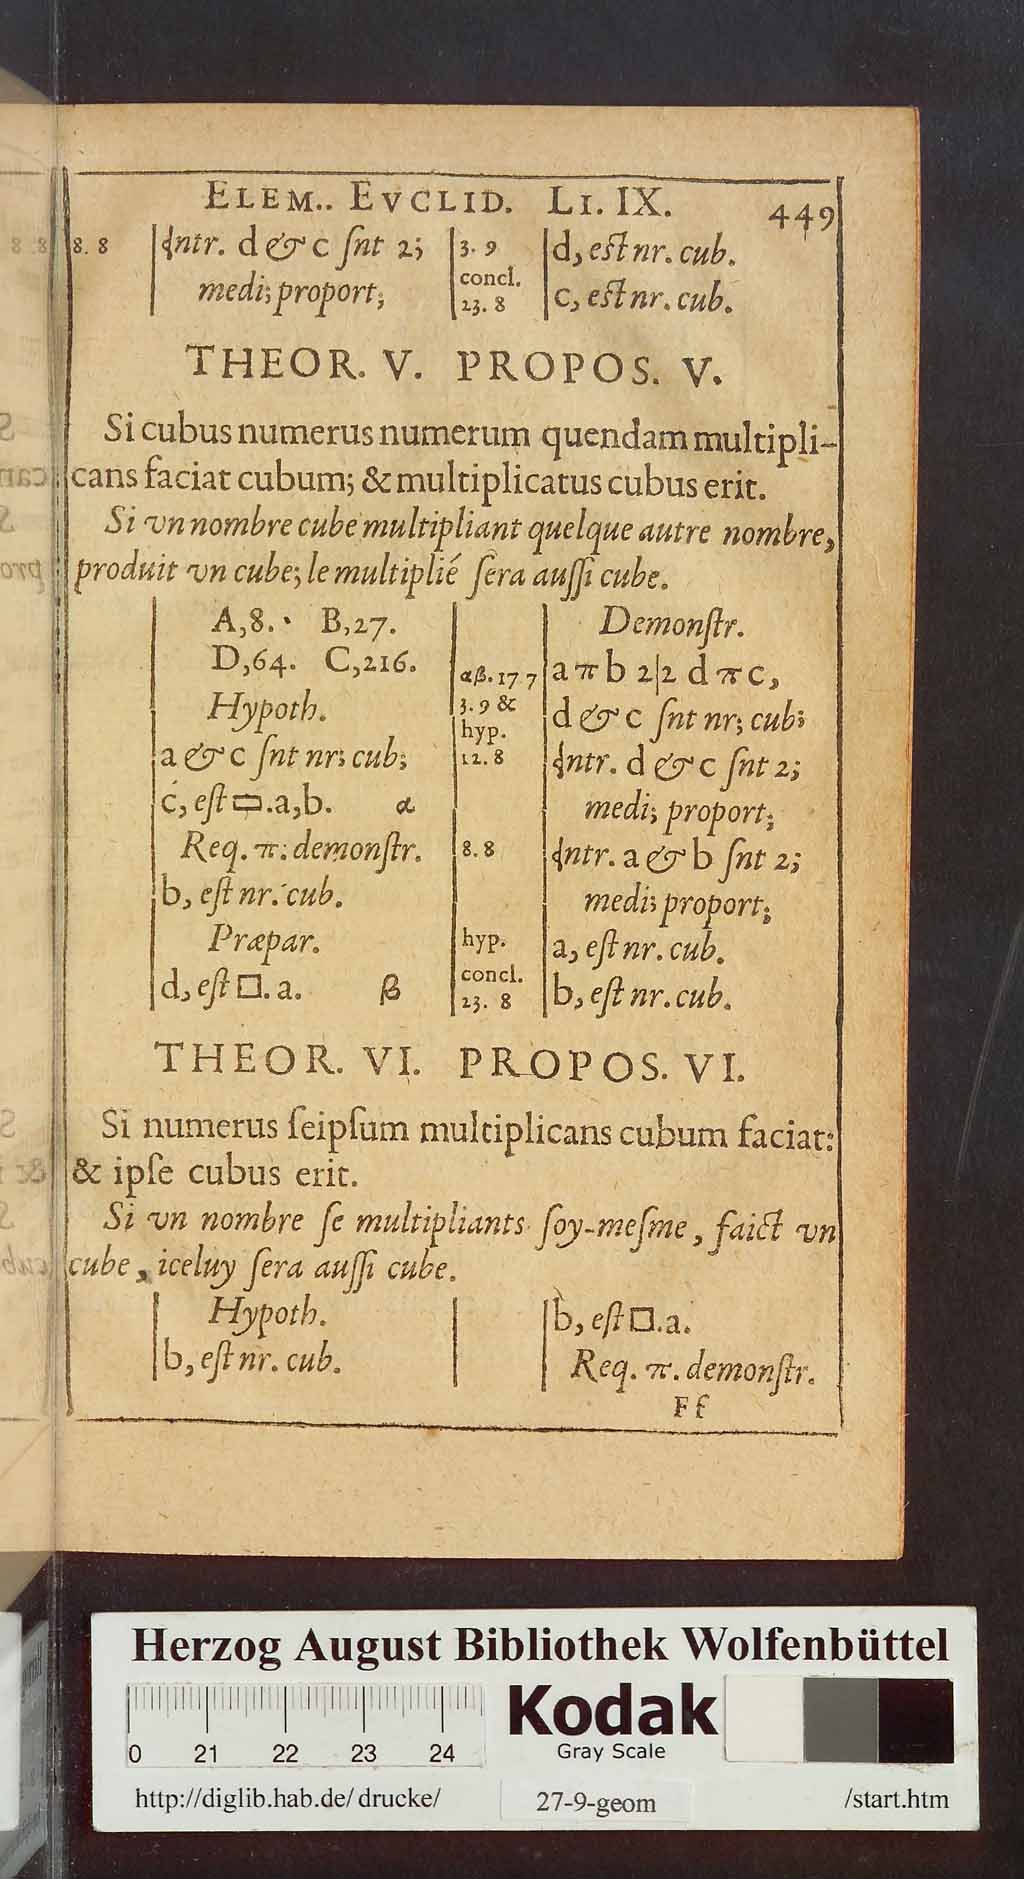 ELEM.. EVCLID. LI. IX. 449
8. 8 Intr. d & c ſnt 2; 3. 9 d, eſt nr. cub.
medi; proport; concl. 23. 8 c, eſt nr. cub.
THEOR. V. PROPOS. V.
Si cubus numerus numerum quendam multipli-
cans faciat cubum; & multiplicatus cubus erit.
Si vn nombre cube multipliant quelque autre nombre,
produit vn cube; le multiplié ſera auſſi cube.
A,8. B,27.
D,64. C,216.
Hypoth.
a & c ſnt nr; cub;
c, eſt ▭.a,b. α
Req. π. demonſtr.
b, eſt nr. cub.
Præpar.
d, eſt □. a. β
Demonſtr.
αβ. 17 7 a π b 2|2 d π c,
3. 9 & hyp. d & c ſnt nr; cub;
12. 8 Intr. d & c ſnt 2;
medi; proport;
8. 8 Intr. a & b ſnt 2;
medi; proport;
hyp. a, eſt nr. cub.
concl. 23. 8 b, eſt nr. cub.
THEOR. VI. PROPOS. VI.
Si numerus ſeipſum multiplicans cubum faciat:
& ipſe cubus erit.
Si vn nombre ſe multipliants ſoy-meſme, faict vn
cube, iceluy ſera auſſi cube.
Hypoth.
b, eſt nr. cub.
b, eſt □.a.
Req. π. demonſtr.
F f
Herzog August Bibliothek Wolfenbüttel
0 21 22 23 24
Kodak
Gray Scale
http://diglib.hab.de/ drucke/ 27-9-geom /start.htm